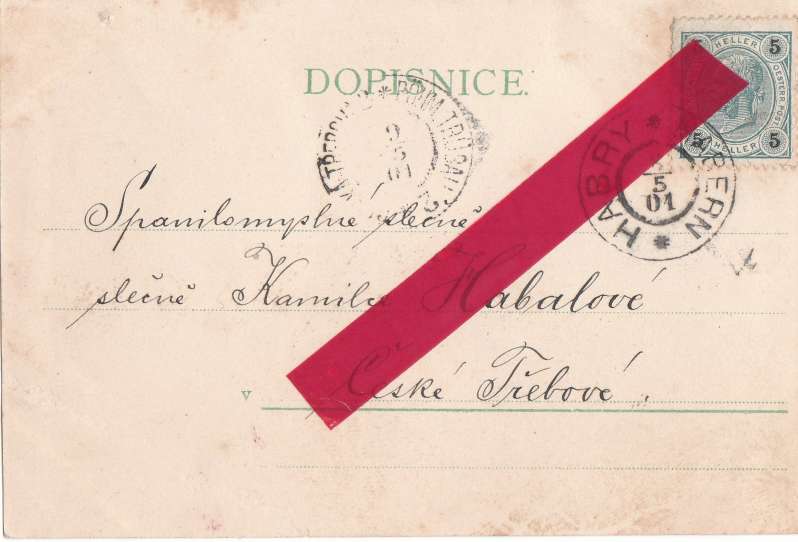 DOPISNICE.
5 HELLER 5
5 HELLER 5
OESTERR. POST
HABRY * HABERN *
5
01
9
5
01
Spanilomyslné slečně
slečně Kamile Habalové
v České Třebové.